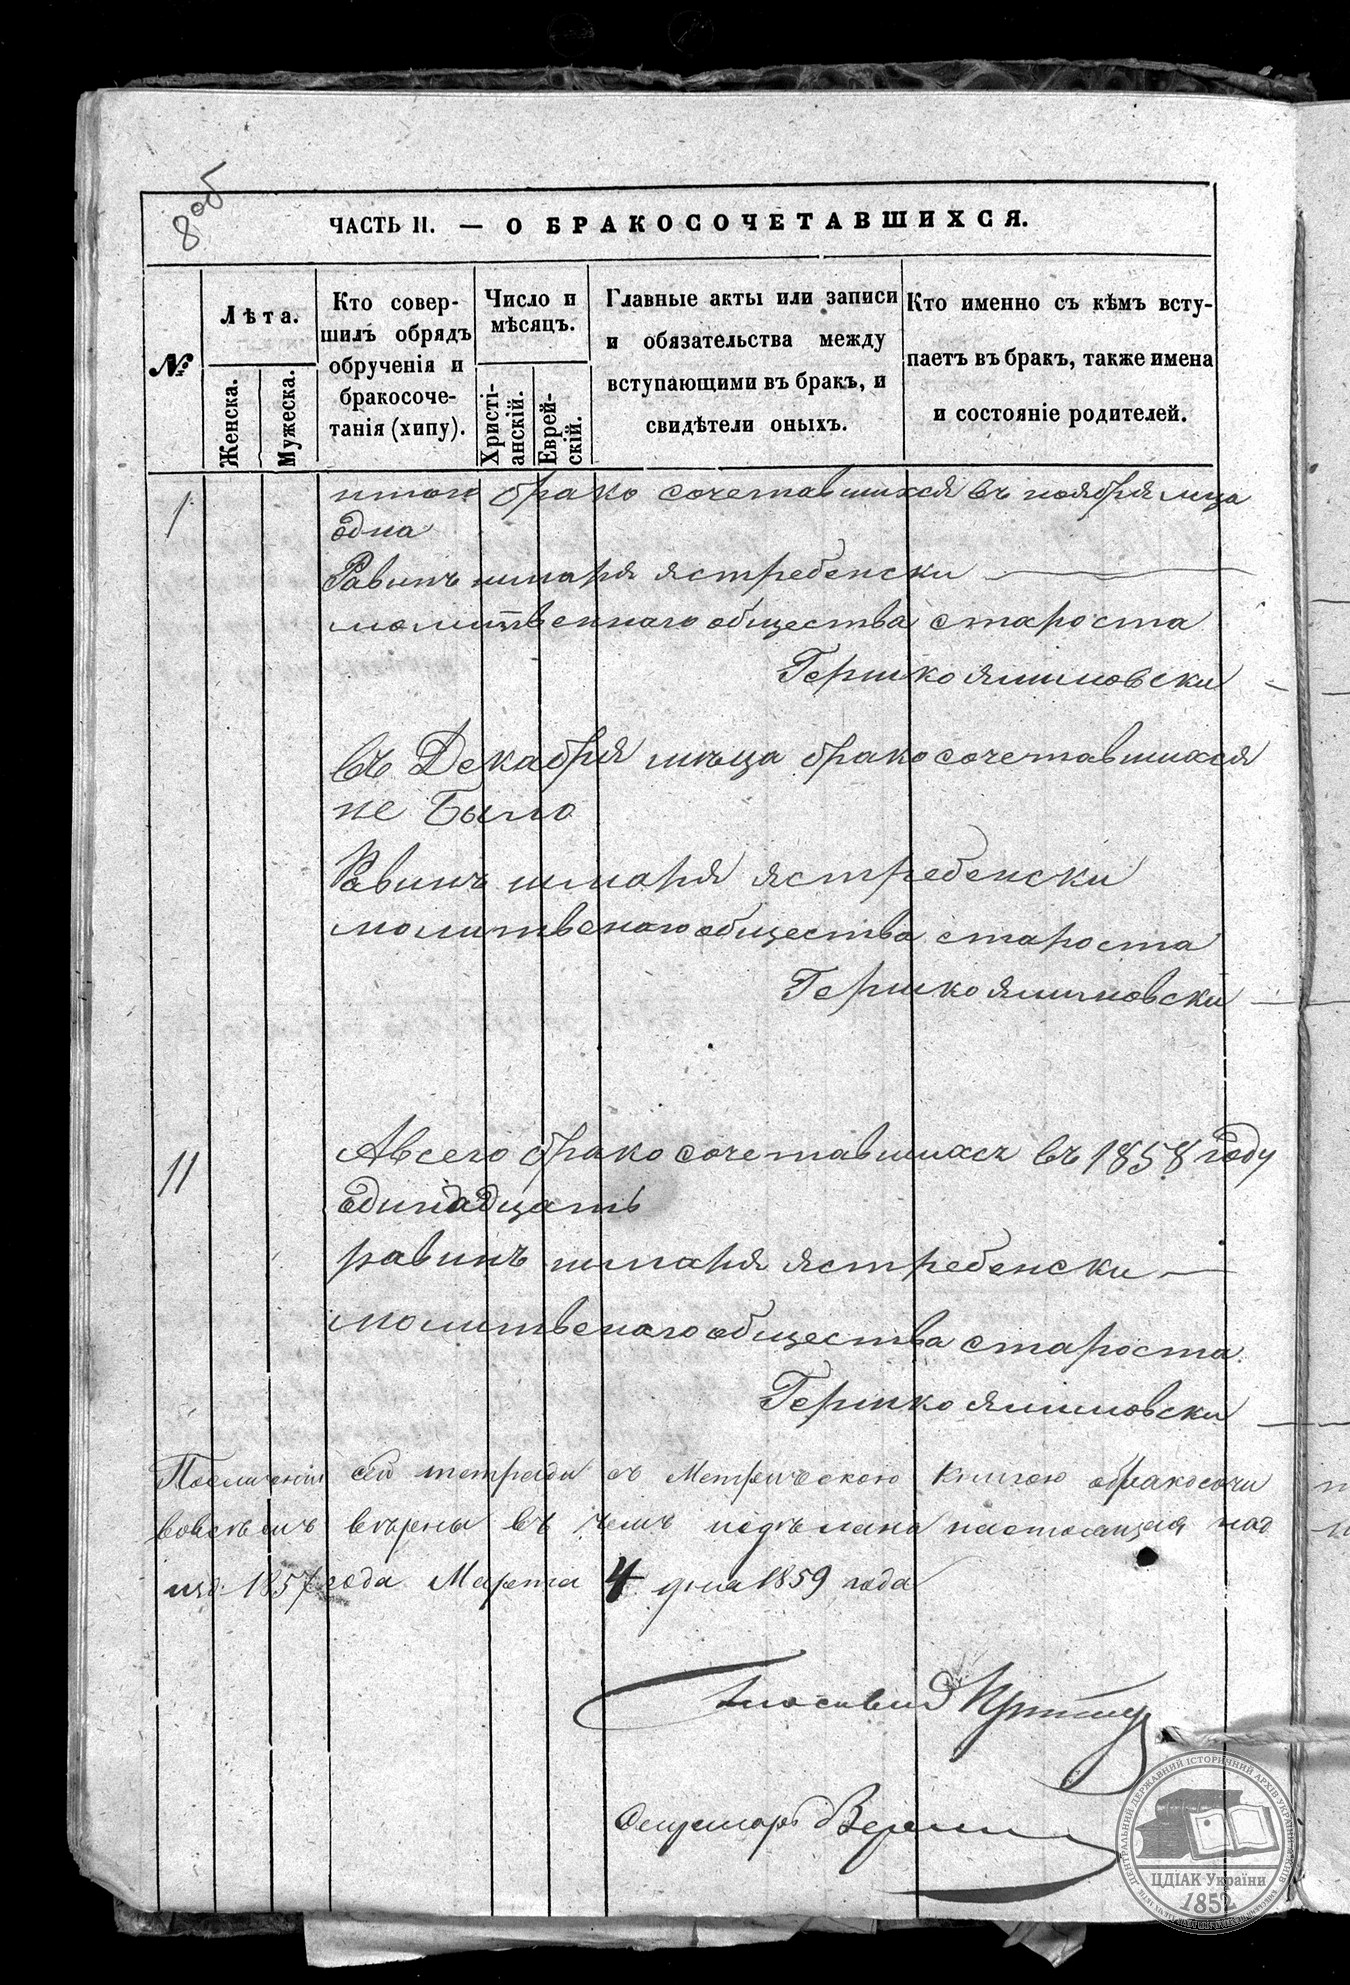 8об
ЧАСТЬ II. — О БРАКОСОЧЕТАВШИХСЯ.
№
Лѣта.
Женска.
Мужеска.
Кто совер-
шилъ обрядъ
обрученія и
бракосоче-
танія (хипу).
Число и
мѣсяцъ.
Христі-
анскій.
Еврей-
скій.
Главные акты или записи
и обязательства между
вступающими въ бракъ, и
свидѣтели оныхъ.
Кто именно съ кѣмъ всту-
паетъ въ бракъ, также имена
и состояніе родителей.
1 итого брако сочетавшихся въ ноября мца
одна
Равинъ шмаря ястребенски
молитвеннаго общества староста
Гершко ямполвски
въ Декабря мѣца бракосочетавшихся
не Было
Равинъ шмаря ястребенски
молитвенаго общества староста
Гершко
11 Авсего брако сочетавшихся въ 1858 году
одинадцать
равинъ шмаря ястребенски
молитвенаго общества староста
Гершко
сей тетради съ Метрическою книгою обракосочи
вѣрны въ чемъ подѣлана настоящая над
1857 года Марта 4 дня 1859 года
Секретарь
ЦЕНТРАЛЬНИЙ ДЕРЖАВНИЙ ІСТОРИЧНИЙ АРХІВ УКРАЇНИ М.КИЇВ
ЦДІАК України
1852